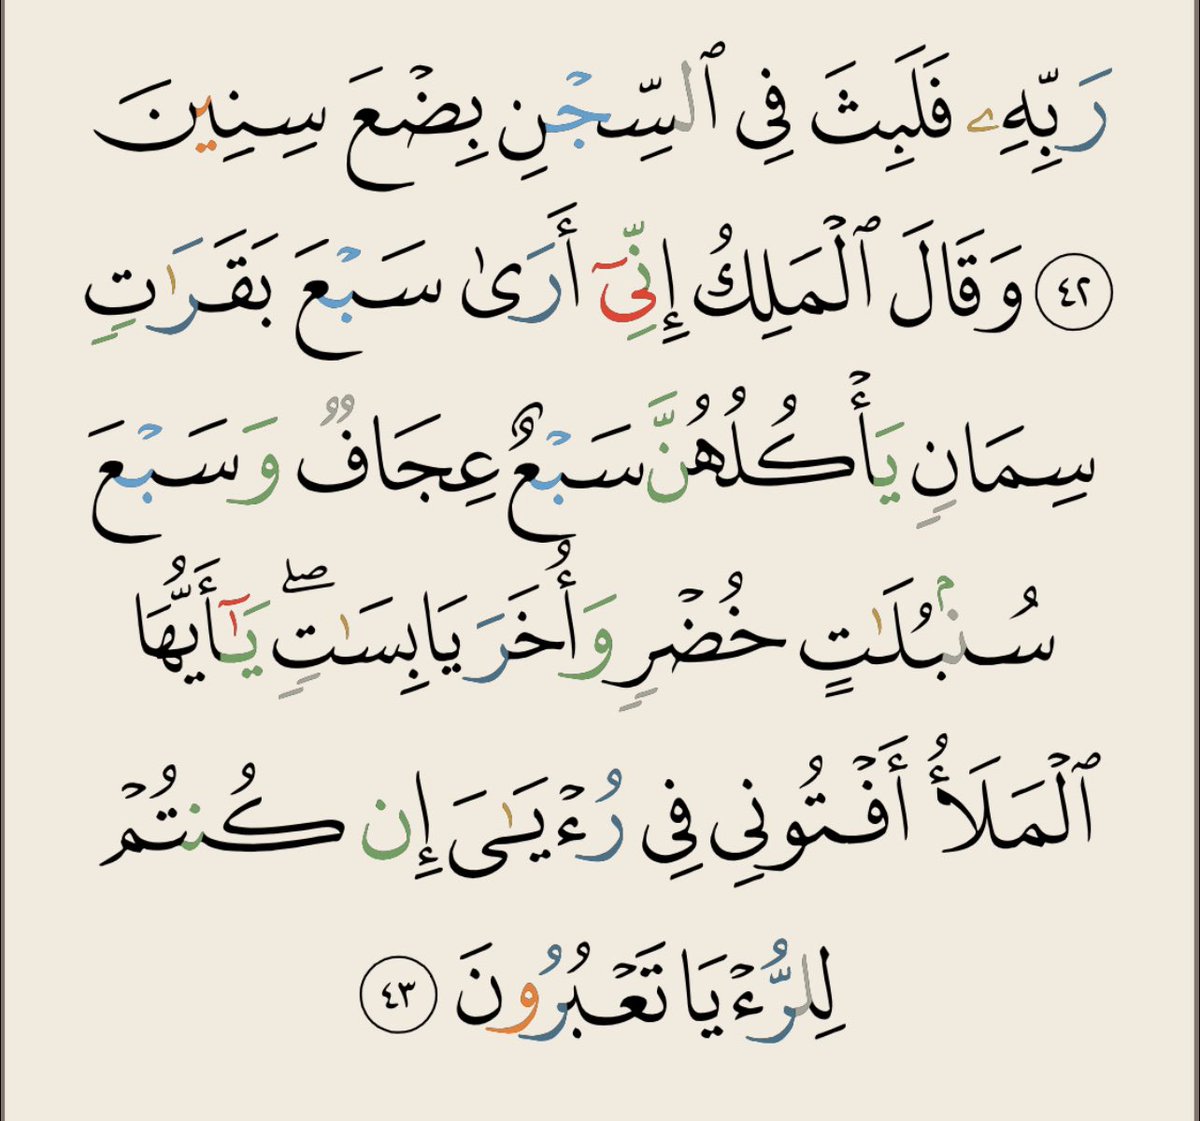 رَبِّهِۦ فَلَبِثَ فِى ٱلسِّجْنِ بِضْعَ سِنِينَ
٤٢ وَقَالَ ٱلْمَلِكُ إِنِّىٓ أَرَىٰ سَبْعَ بَقَرَٰتٍ
سِمَانٍ يَأْكُلُهُنَّ سَبْعٌ عِجَافٌ وَسَبْعَ
سُنۢبُلَـٰتٍ خُضْرٍ وَأُخَرَ يَابِسَـٰتٍ ۖ يَـٰٓأَيُّهَا
ٱلْمَلَأُ أَفْتُونِى فِى رُءْيَـٰىَ إِن كُنتُمْ
لِلرُّءْيَا تَعْبُرُونَ ٤٣